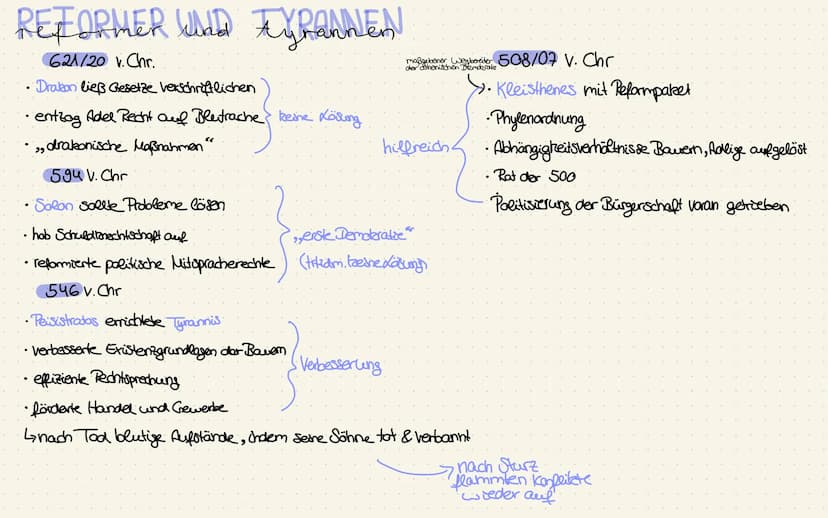 REFORMER UND TYRANNEN
reformer und tyrannen
621/20 v. Chr.
· Drakon ließ Gesetze verschriftlichen
· entzog Adel Recht auf Blutrache
· „drakonische Maßnahmen"
keine Lösung
594 v. Chr
· Solon sollte Probleme lösen
· hob Schuldknechtschaft auf
· reformierte politische Mitspracherechte
„erste Demokratie"
(trtzdm. keine Lösung)
546 v. Chr
· Peisistratos errichtete Tyrannis
· verbesserte Existenzgrundlagen der Bauern
· effiziente Rechtsprechung
· förderte Handel und Gewerbe
Verbesserung
↳ nach Tod blutige Aufstände, indem seine Söhne tot & verbannt
→ nach Sturz
flammten Konflikte
wieder auf
maßgebener Wegbereiter
der athenischen Demokratie
508/07 v. Chr
· Kleisthenes mit Reformpaket
· Phylenordnung
hilfreich
· Abhängigkeitsverhältnisse Bauern, Adlige aufgelöst
· Rat der 500
· Politisierung der Bürgerschaft voran getrieben